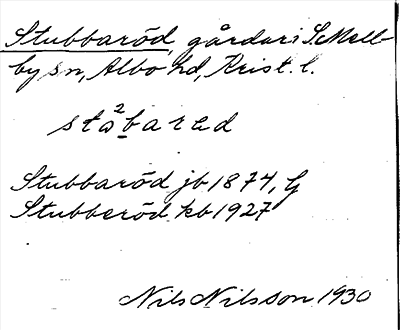 Stubbaröd, gårdar i S. Mell-
by sn, Albo hd, Krist. l.
sta²bared
Stubbaröd jb 1874, G
Stubberöd kb 1927
Nils Nilsson 1930